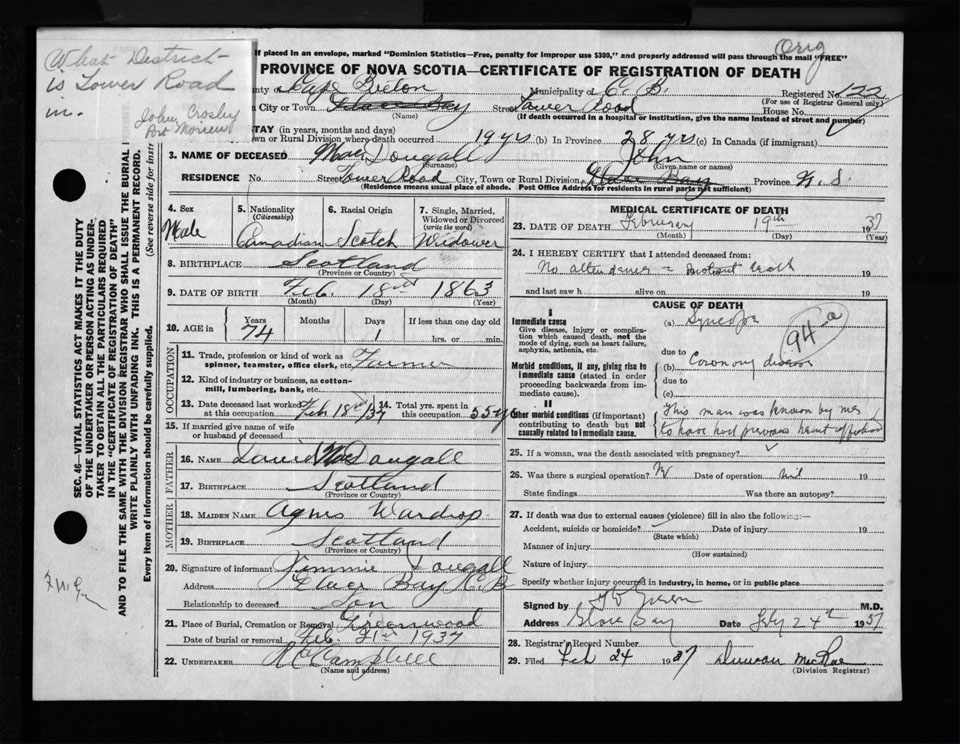 What District
is Tower Road
in.
John Crosby
Port Morien
Orig
If placed in an envelope, marked "Dominion Statistics—Free, penalty for improper use $300," and properly addressed will pass through the mail "FREE"
PROVINCE OF NOVA SCOTIA—CERTIFICATE OF REGISTRATION OF DEATH
nty of Cape Breton Municipality of C. B. Registered No. 122
(For use of Registrar General only)
n City or Town Glace Bay Street Tower Road House No.
(Name) (If death occurred in a hospital or institution, give the name instead of street and number)
STAY (in years, months and days)
own or Rural Division where death occurred 19 yrs (b) In Province 28 yrs (c) In Canada (if immigrant)
3. NAME OF DECEASED MacDougall John
(Surname) (Given name or names)
RESIDENCE No. Street Tower Road City, Town or Rural Division Glace Bay Province N. S.
(Residence means usual place of abode. Post Office Address for residents in rural parts not sufficient)
SEC. 46—VITAL STATISTICS ACT MAKES IT THE DUTY
OF THE UNDERTAKER OR PERSON ACTING AS UNDER-
TAKER TO OBTAIN ALL THE PARTICULARS REQUIRED
IN THE "CERTIFICATE OF REGISTRATION OF DEATH"
AND TO FILE THE SAME WITH THE DIVISION REGISTRAR WHO SHALL ISSUE THE BURIAL
WRITE PLAINLY WITH UNFADING INK. THIS IS A PERMANENT RECORD.
Every item of information should be carefully supplied. (See reverse side for instr
4. Sex
Male
5. Nationality
(Citizenship)
Canadian
6. Racial Origin
Scotch
7. Single, Married,
Widowed or Divorced
(write the word)
Widower
8. BIRTHPLACE Scotland
(Province or Country)
9. DATE OF BIRTH Feb. 18th 1863
(Month) (Day) (Year)
10. AGE in Years Months Days If less than one day old
74 1 hrs. or min.
OCCUPATION
11. Trade, profession or kind of work as
spinner, teamster, office clerk, etc. Farmer
12. Kind of industry or business, as cotton-
mill, lumbering, bank, etc.
13. Date deceased last worked
at this occupation Feb 18th/37 14. Total yrs. spent in
this occupation 55 yrs
15. If married give name of wife
or husband of deceased
FATHER
16. NAME David MacDougall
17. BIRTHPLACE Scotland
(Province or Country)
MOTHER
18. MAIDEN NAME Agnes Wardrop
19. BIRTHPLACE Scotland
(Province or Country)
20. Signature of informant Jimmie Dougall
Address Glace Bay C. B
Relationship to deceased Son
21. Place of Burial, Cremation or Removal Greenwood
Date of burial or removal Feb. 21st 1937
22. UNDERTAKER Campbell
(Name and address)
MEDICAL CERTIFICATE OF DEATH
23. DATE OF DEATH February 19th 1937
(Month) (Day) (Year)
24. I HEREBY CERTIFY that I attended deceased from:
No attendance – instant death 19
and last saw h alive on 19
CAUSE OF DEATH
I
Immediate cause
Give disease, injury or complica-
tion which caused death, not the
mode of dying, such as heart failure,
asphyxia, asthenia, etc.
(a) Syncope
94 a
due to
Morbid conditions, if any, giving rise to
Immediate cause (stated in order
proceeding backwards from im-
mediate cause).
(b) Coronary disease
due to
(c)
II
Other morbid conditions (if important)
contributing to death but not
causally related to immediate cause.
This man was known by me
to have had previous heart affection
25. If a woman, was the death associated with pregnancy?
26. Was there a surgical operation? N Date of operation nil 19
State findings Was there an autopsy?
27. If death was due to external causes (violence) fill in also the following:—
Accident, suicide or homicide? Date of injury 19
(State which)
Manner of injury
(How sustained)
Nature of injury
Specify whether injury occurred in industry, in home, or in public place
Signed by M.D.
Address Glace Bay Date Feby 24th 1937
28. Registrar's Record Number
29. Filed Feb 24 1937 Duncan MacRae
(Division Registrar)